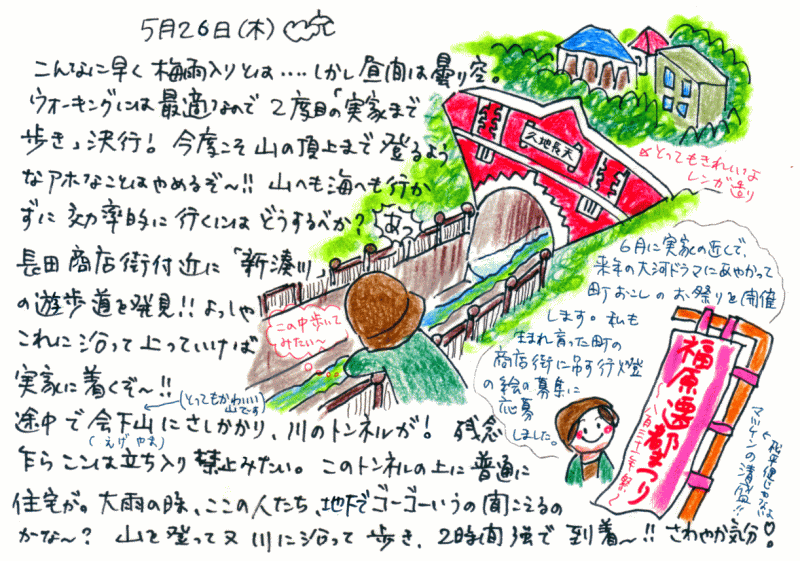 5月26日(木)
こんなに早く梅雨入りとは‥‥しかし昼間は曇り空。
ウオーキングには最適なので2度目の「実家まで
歩き」決行！今度こそ山の頂上まで登るよう
なアホなことはやめるぞ〜!!山へも海へも行か
ずに効率的に行くにはどうするべか?
長田商店街付近に「新湊川」
の遊歩道を発見!!よっしゃ
これに沿って上っていけば
実家に着くぞ〜!!
途中で会下山にさしかかり、川のトンネルが！残念
(えげやま)
(とってもかわいい
山です)
乍らここは立ち入り禁止みたい。このトンネルの上に普通に
住宅が。大雨の時、ここの人たち、地下でゴーゴーいうの聞こえるの
かな〜?山を登って又川に沿って歩き、2時間強で到着〜!!さわやか気分!
あっ
この中歩いて
みたい〜
天長地久
とってもきれいよ
レンガ造り
6月に実家の近くで、
来年の大河ドラマにあやかって
町おこしのお祭りを開催
します。私も
生まれ育った町の
商店街に吊す行燈
の絵の募集に
応募
しました。
福原遷都まつり
マツケンの清盛!!